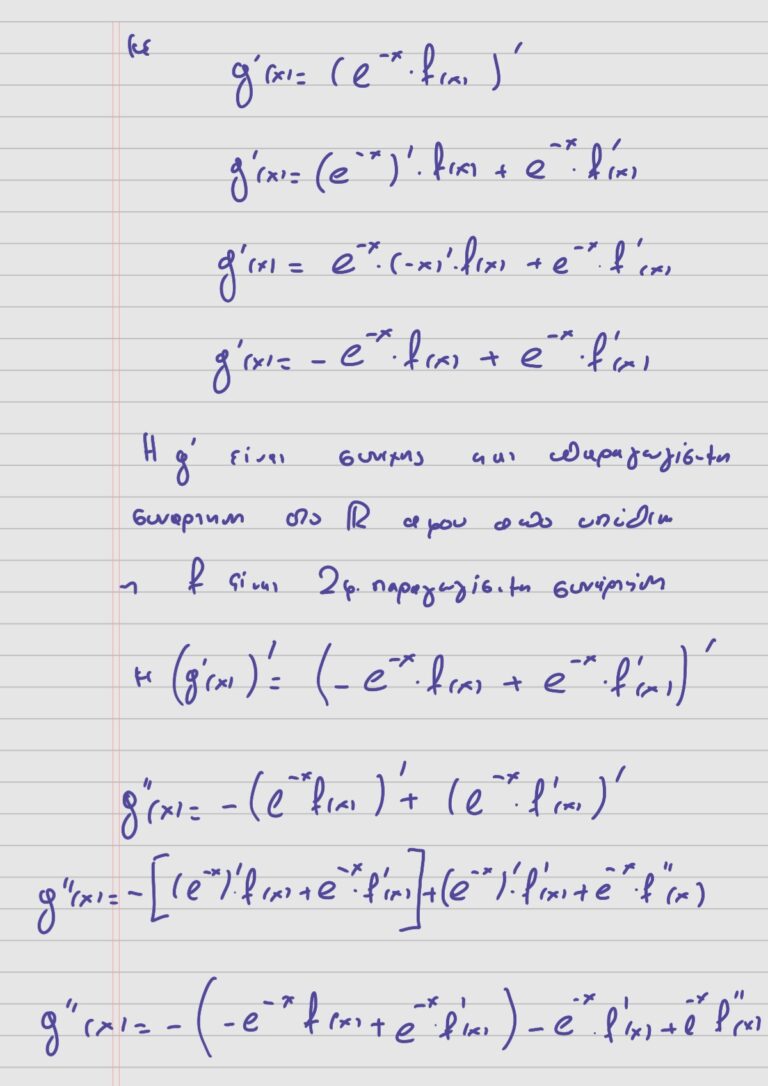 με
g'(x) = (e^{-x} · f(x))'
g'(x) = (e^{-x})' · f(x) + e^{-x} · f'(x)
g'(x) = e^{-x} · (-x)' · f(x) + e^{-x} · f'(x)
g'(x) = - e^{-x} · f(x) + e^{-x} · f'(x)
Η g' είναι συνεχης και παραγωγίσιμη
συναρτηση στο ℝ αφου απο υπόθεση
η f είναι 2φ. παραγωγίσιμη συνάρτηση
με (g'(x))' = (- e^{-x} · f(x) + e^{-x} · f'(x))'
g''(x) = - (e^{-x} f(x))' + (e^{-x} · f'(x))'
g''(x) = - [(e^{-x})' · f(x) + e^{-x} · f'(x)] + (e^{-x})' · f'(x) + e^{-x} · f''(x)
g''(x) = - (-e^{-x} f(x) + e^{-x} · f'(x)) - e^{-x} · f'(x) + e^{-x} f''(x)